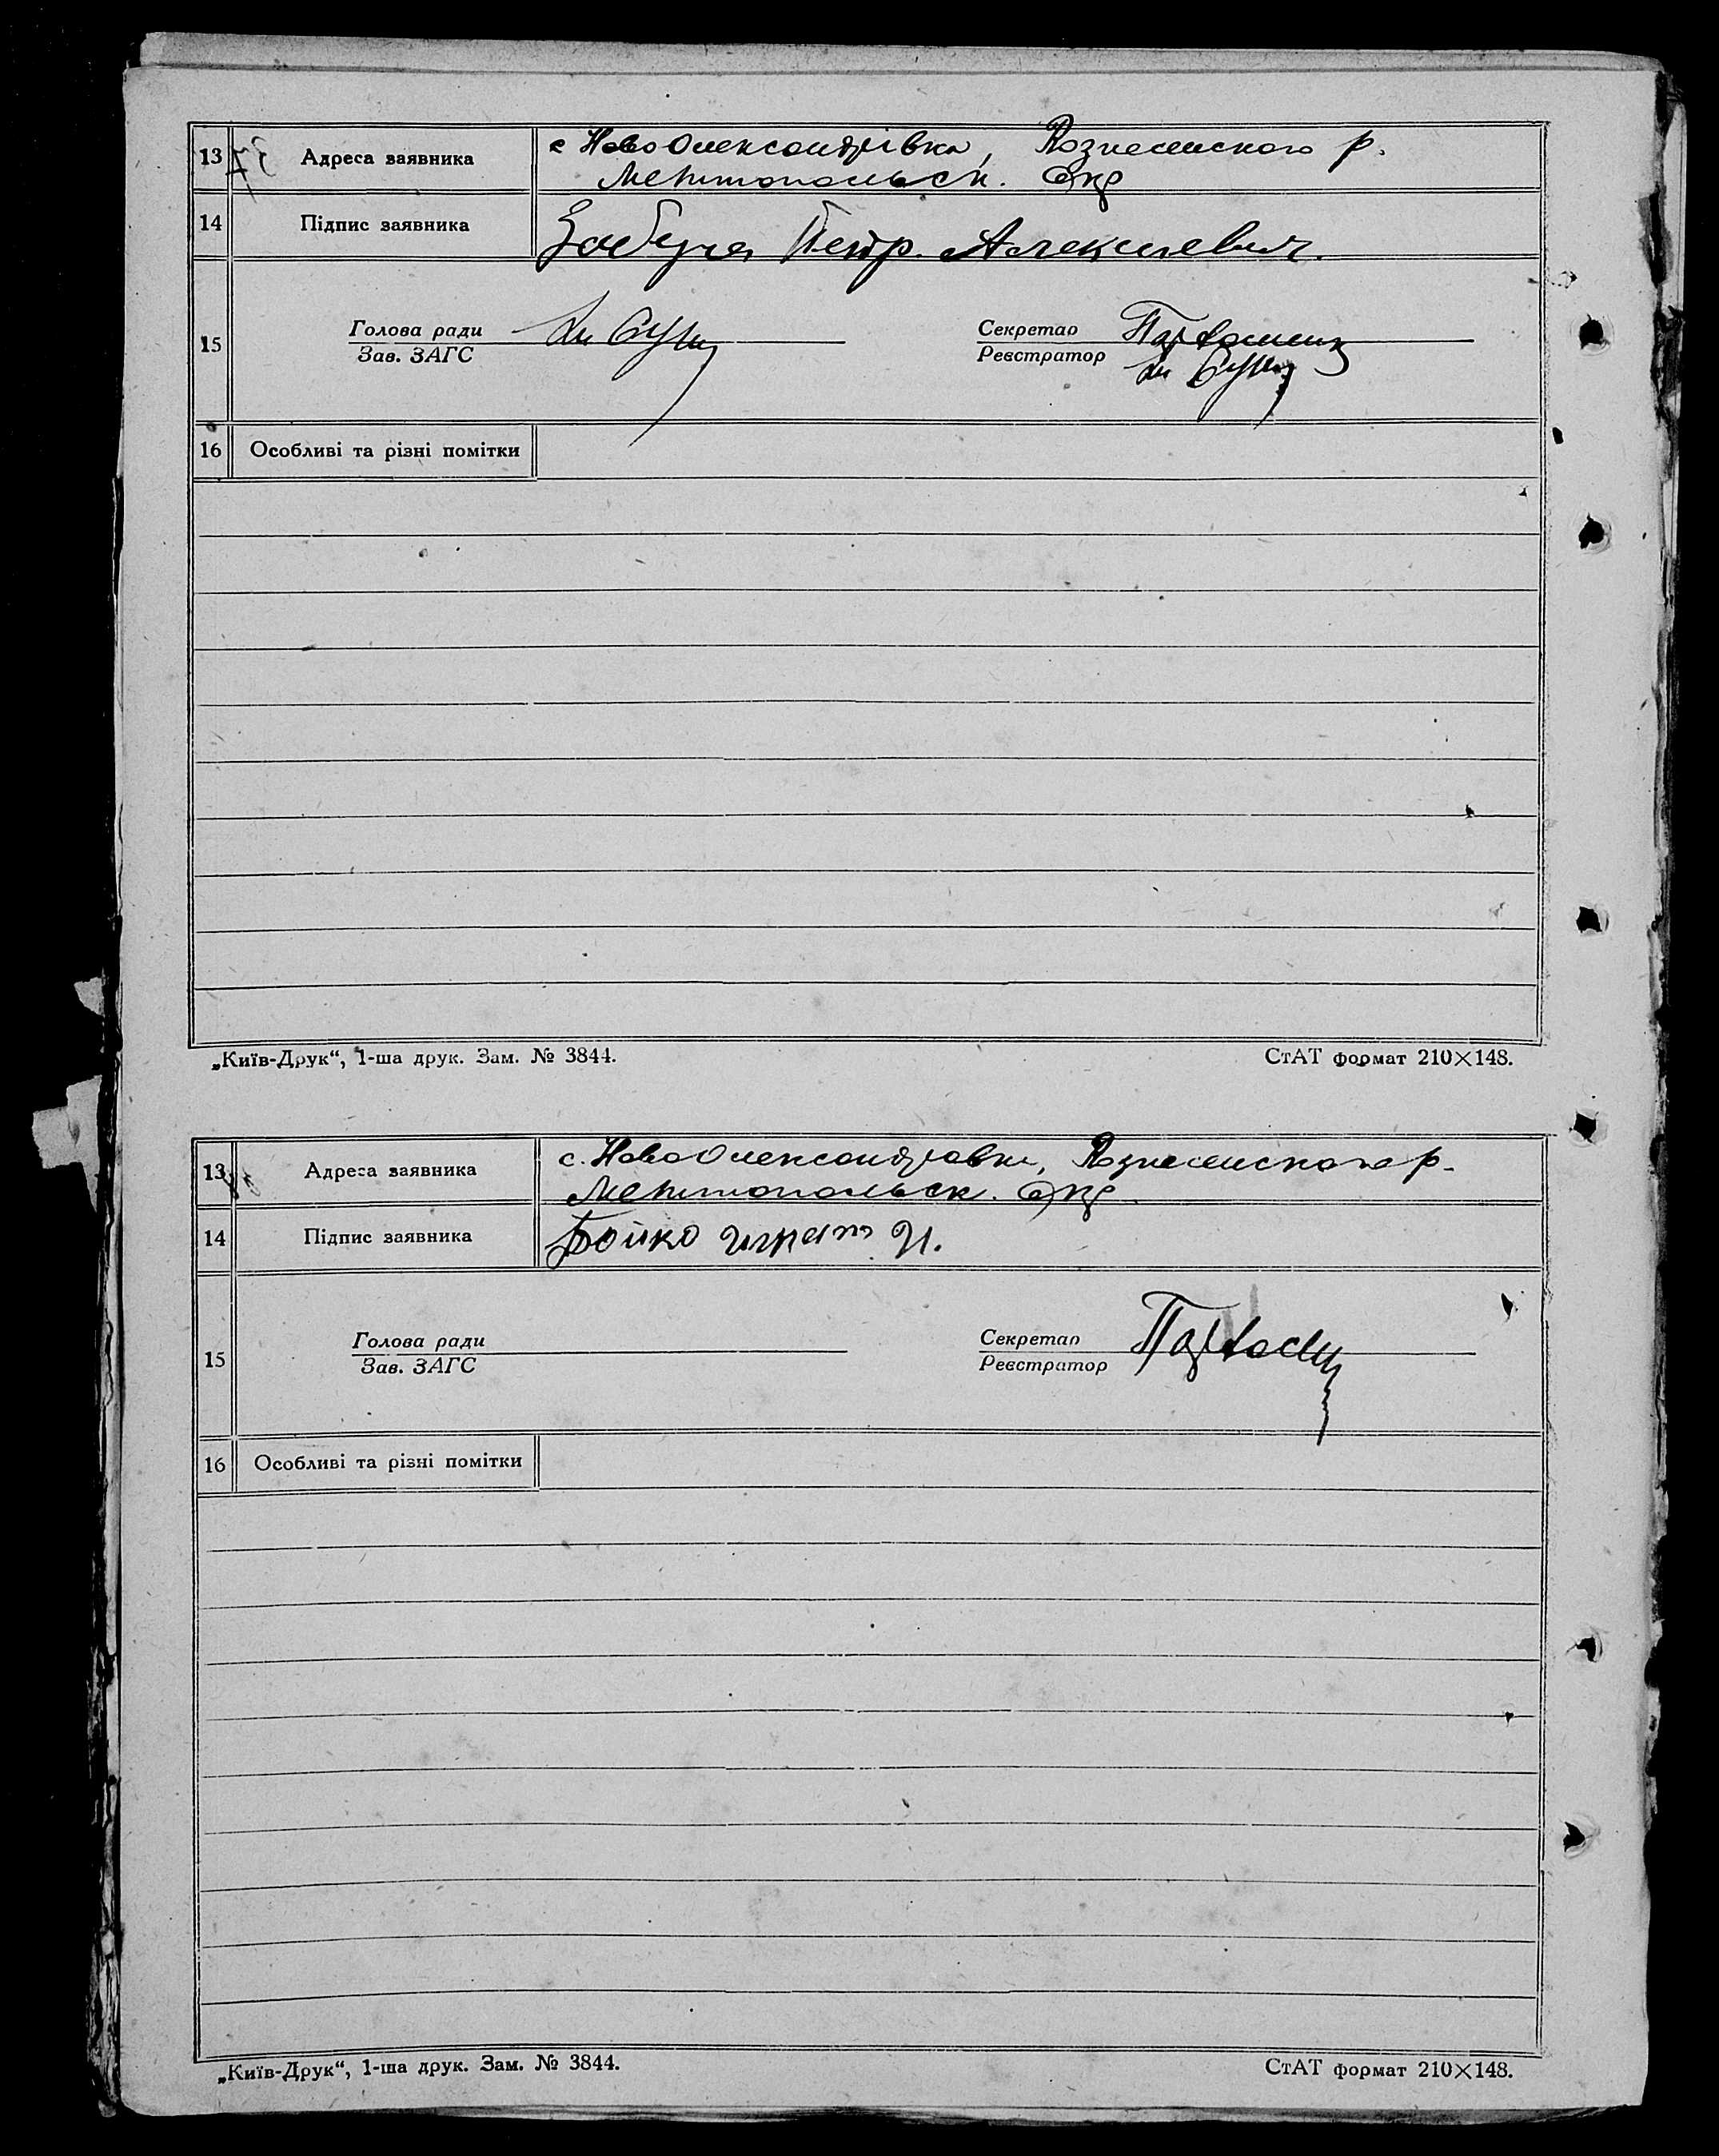 13 Адреса заявника с НовоОлександрівка, Вознесенского р.
Мелитопольск. Окр
14 Підпис заявника Забуга Петр. Алексиевич.
Голова ради Секретар
15 Зав. ЗАГС Реєстратор
16 Особливі та різні помітки
„Київ-Друк“, 1-ша друк. Зам. № 3844. СтАТ формат 210×148.
13 Адреса заявника с. НовоОлександровка, Вознесенского р.
Мелитопольск. Окр.
14 Підпис заявника Бойко Игнат И.
Голова ради Секретар
15 Зав. ЗАГС Реєстратор
16 Особливі та різні помітки
„Київ-Друк“, 1-ша друк. Зам. № 3844. СтАТ формат 210×148.